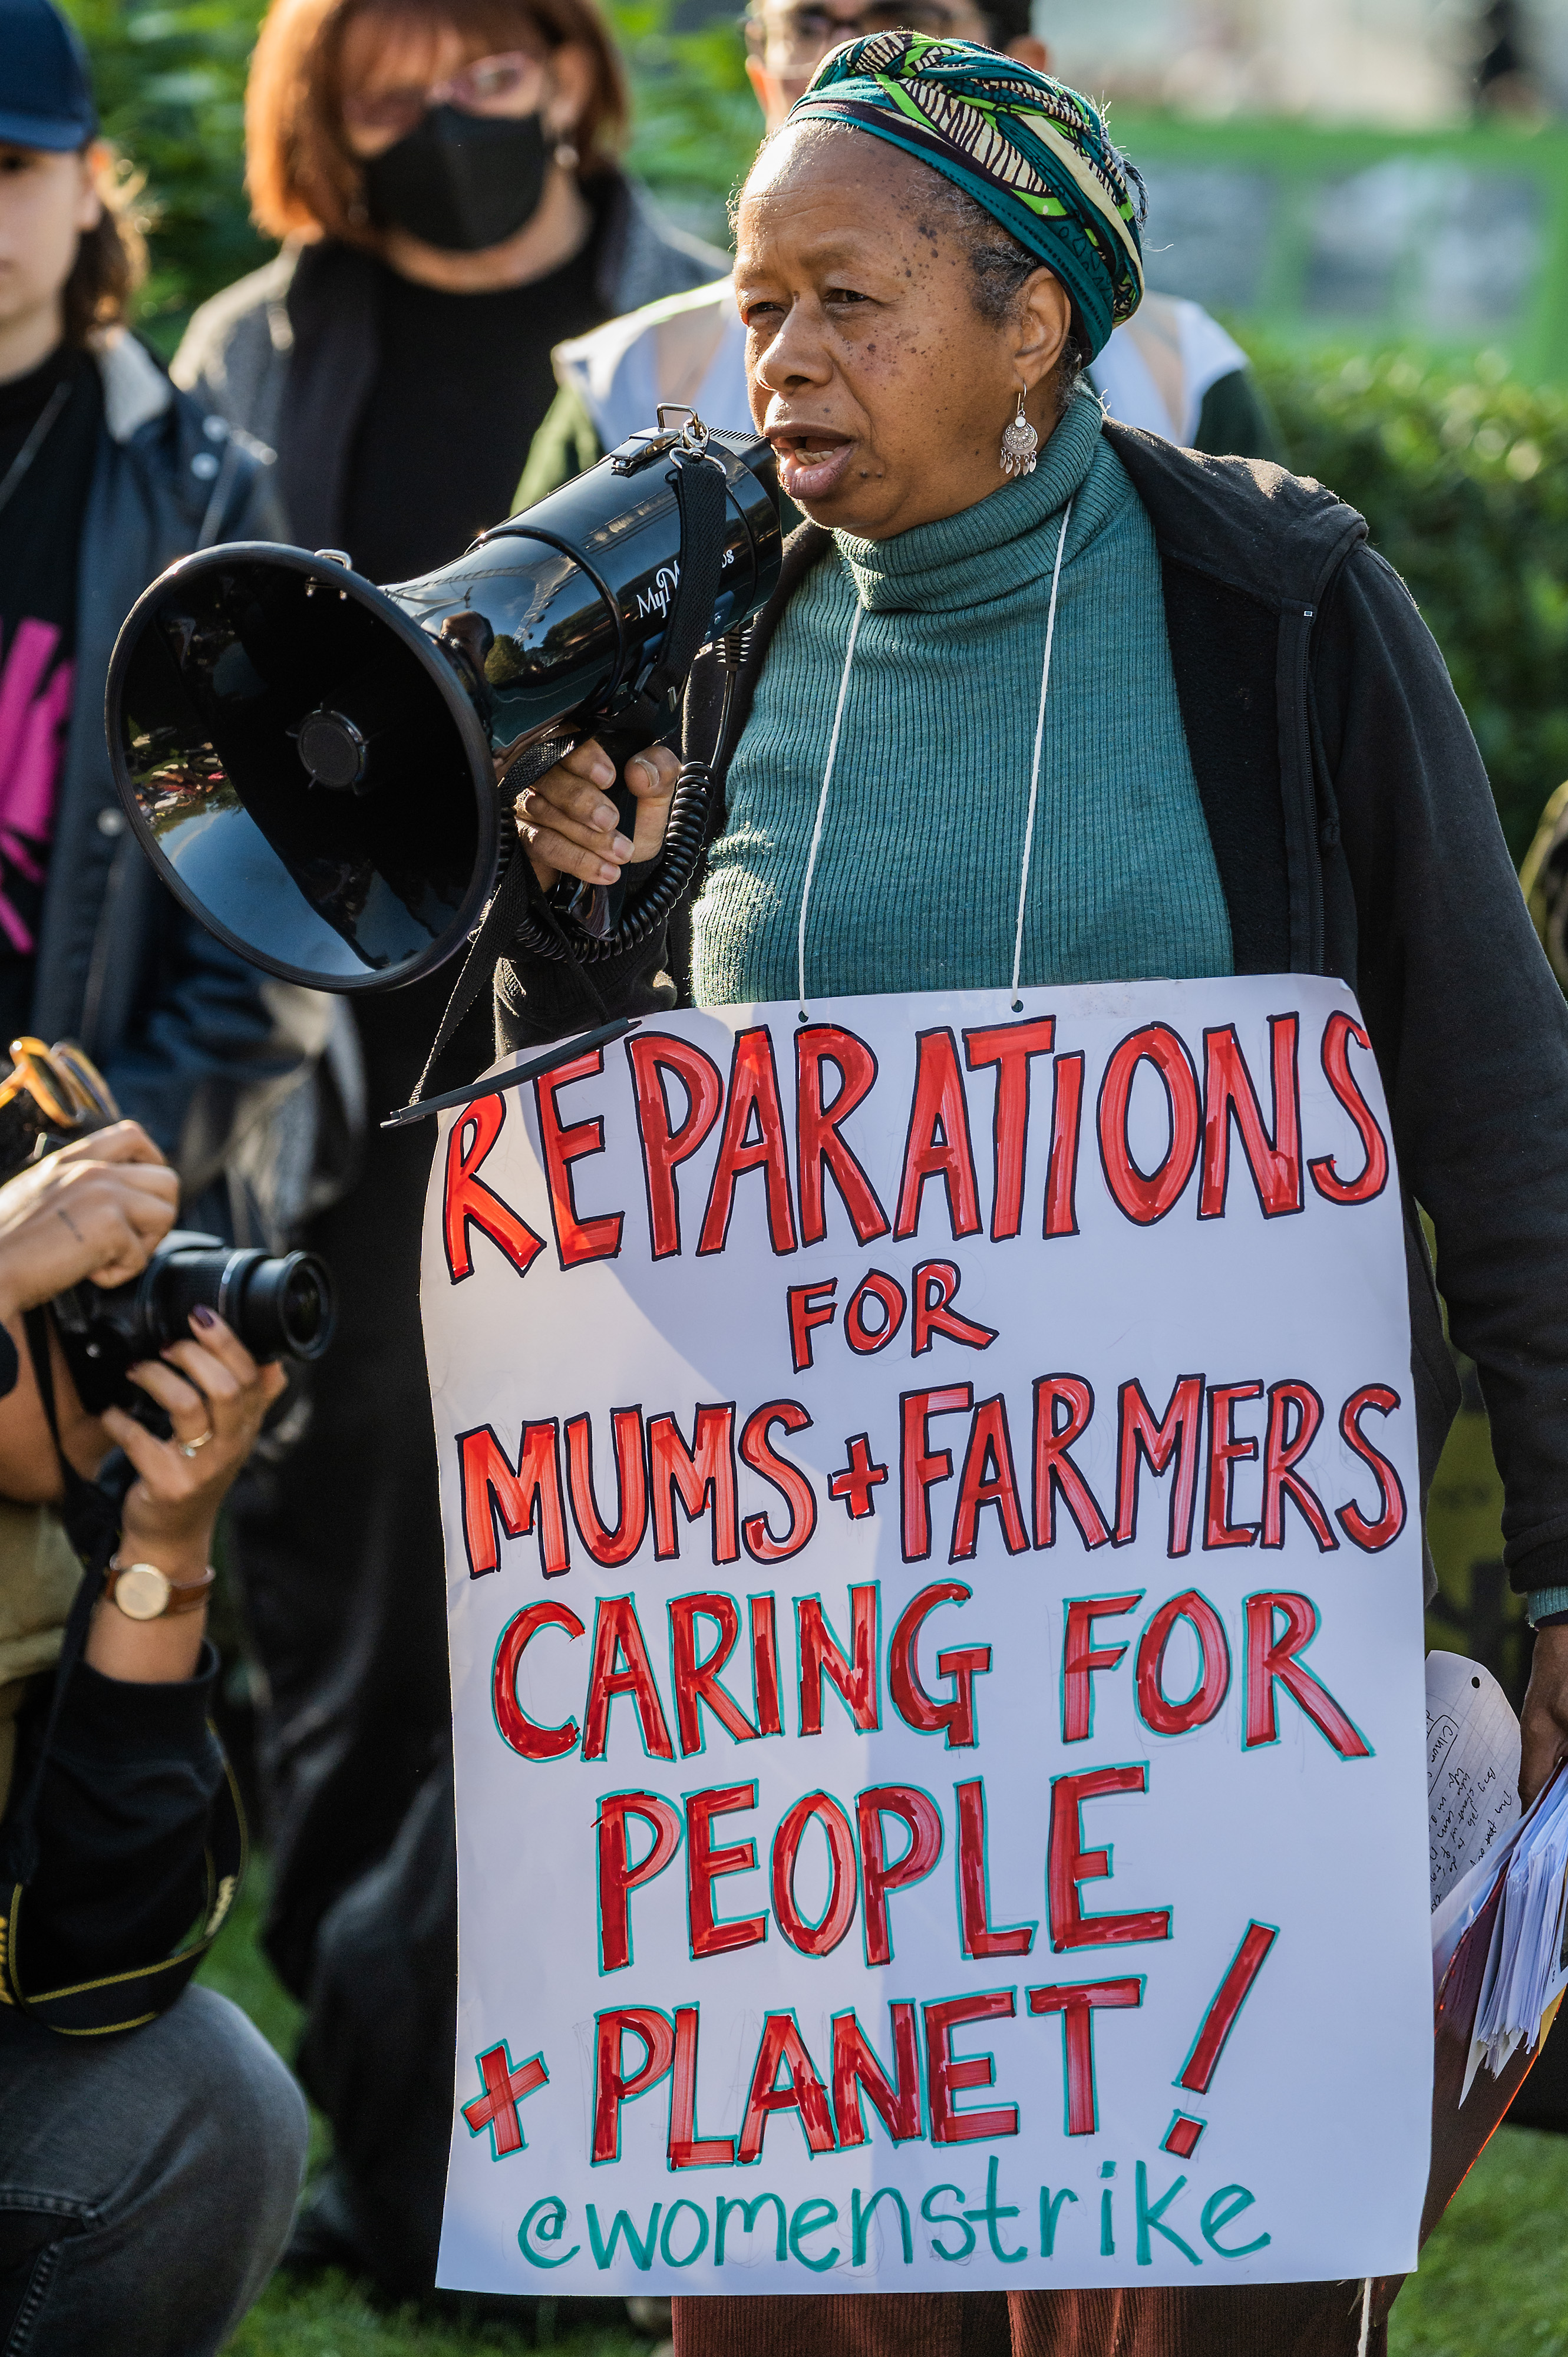 REPARATIONS
FOR
MUMS + FARMERS
CARING FOR
PEOPLE
+ PLANET!
@womenstrike